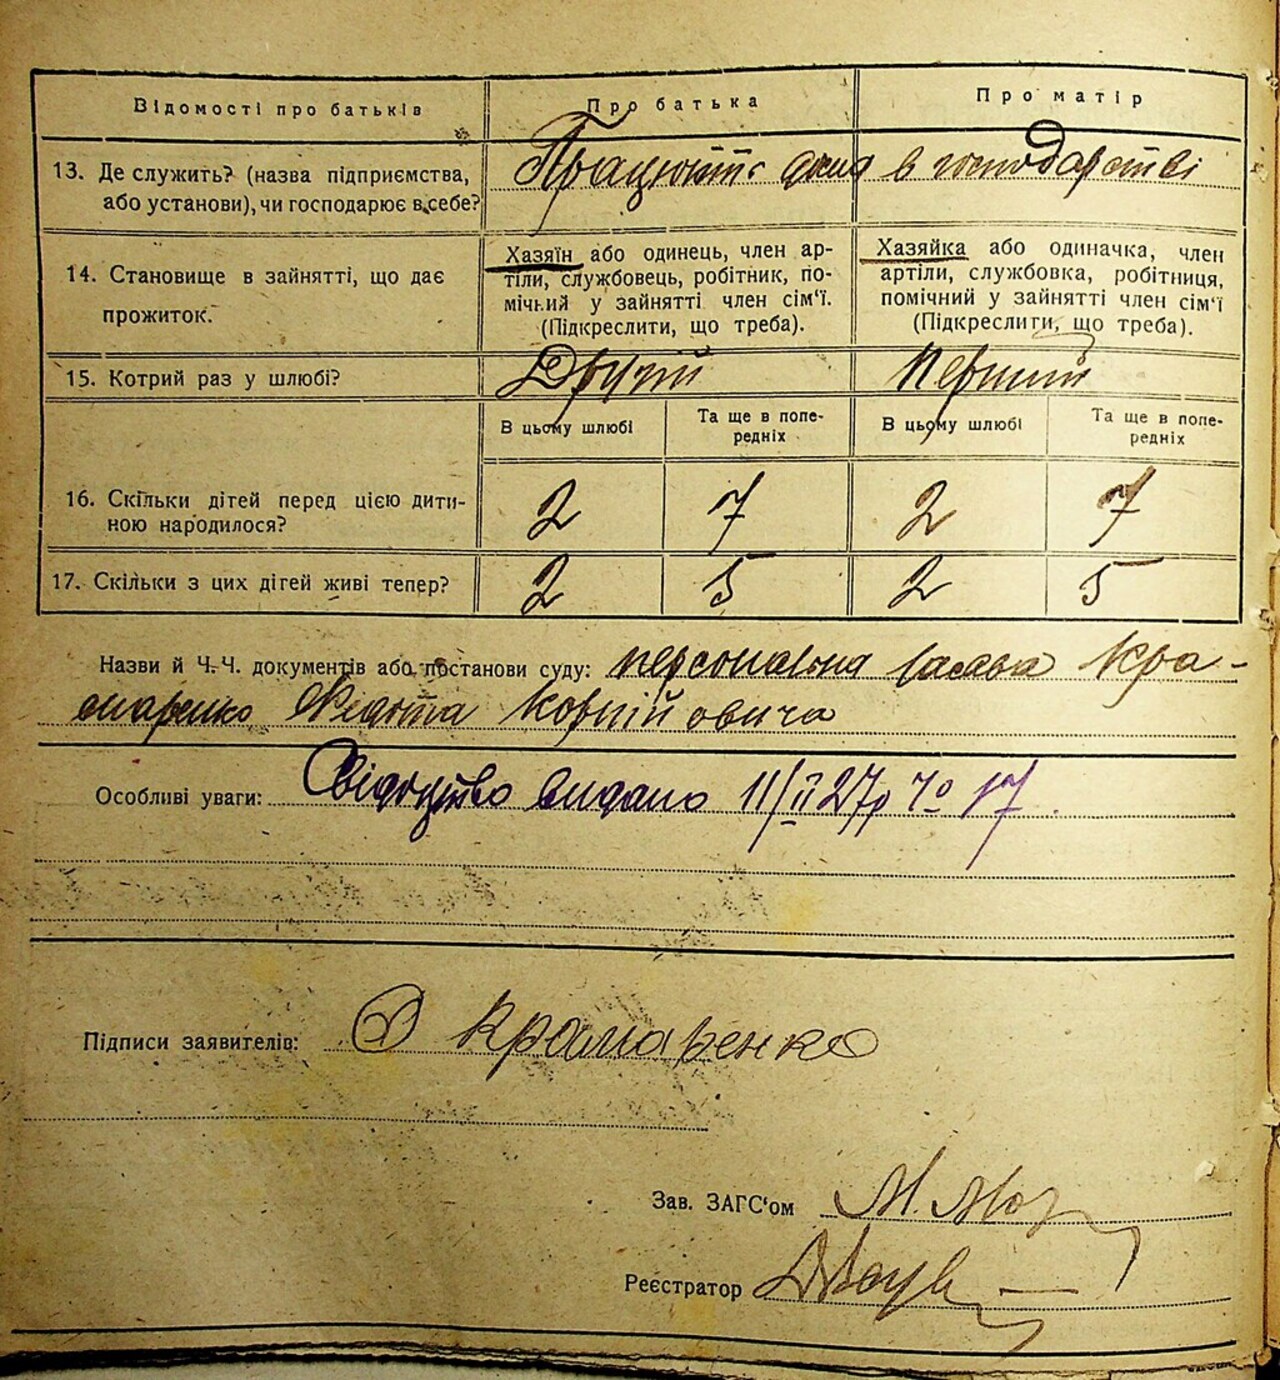 Відомості про батьків Про батька Про матір
13. Де служить? (назва підприємства, або установи), чи господарює в себе?
Працюють в господарстві
14. Становище в зайнятті, що дає прожиток.
Хазяїн або одинець, член ар-
тіли, службовець, робітник, по-
мічний у зайнятті член сім'ї.
(Підкреслити, що треба).
Хазяйка або одиначка, член
артіли, службовка, робітниця,
помічний у зайнятті член сім'ї
(Підкреслити, що треба).
15. Котрий раз у шлюбі? Другий Перший
В цьому шлюбі Та ще в попе-
редніх В цьому шлюбі Та ще в попе-
редніх
16. Скільки дітей перед цією дити-
ною народилося? 2 7 2 7
17. Скільки з цих дітей живі тепер? 2 5 2 5
Назви й Ч.Ч. документів або постанови суду: персональна заява Кра-
маренко Федота Корнійовича
Особливі уваги: Свідоцтво видано 11/II 27р № 17
Підписи заявителів: Ф Крамаренко
Зав. ЗАГС'ом М.
Реєстратор